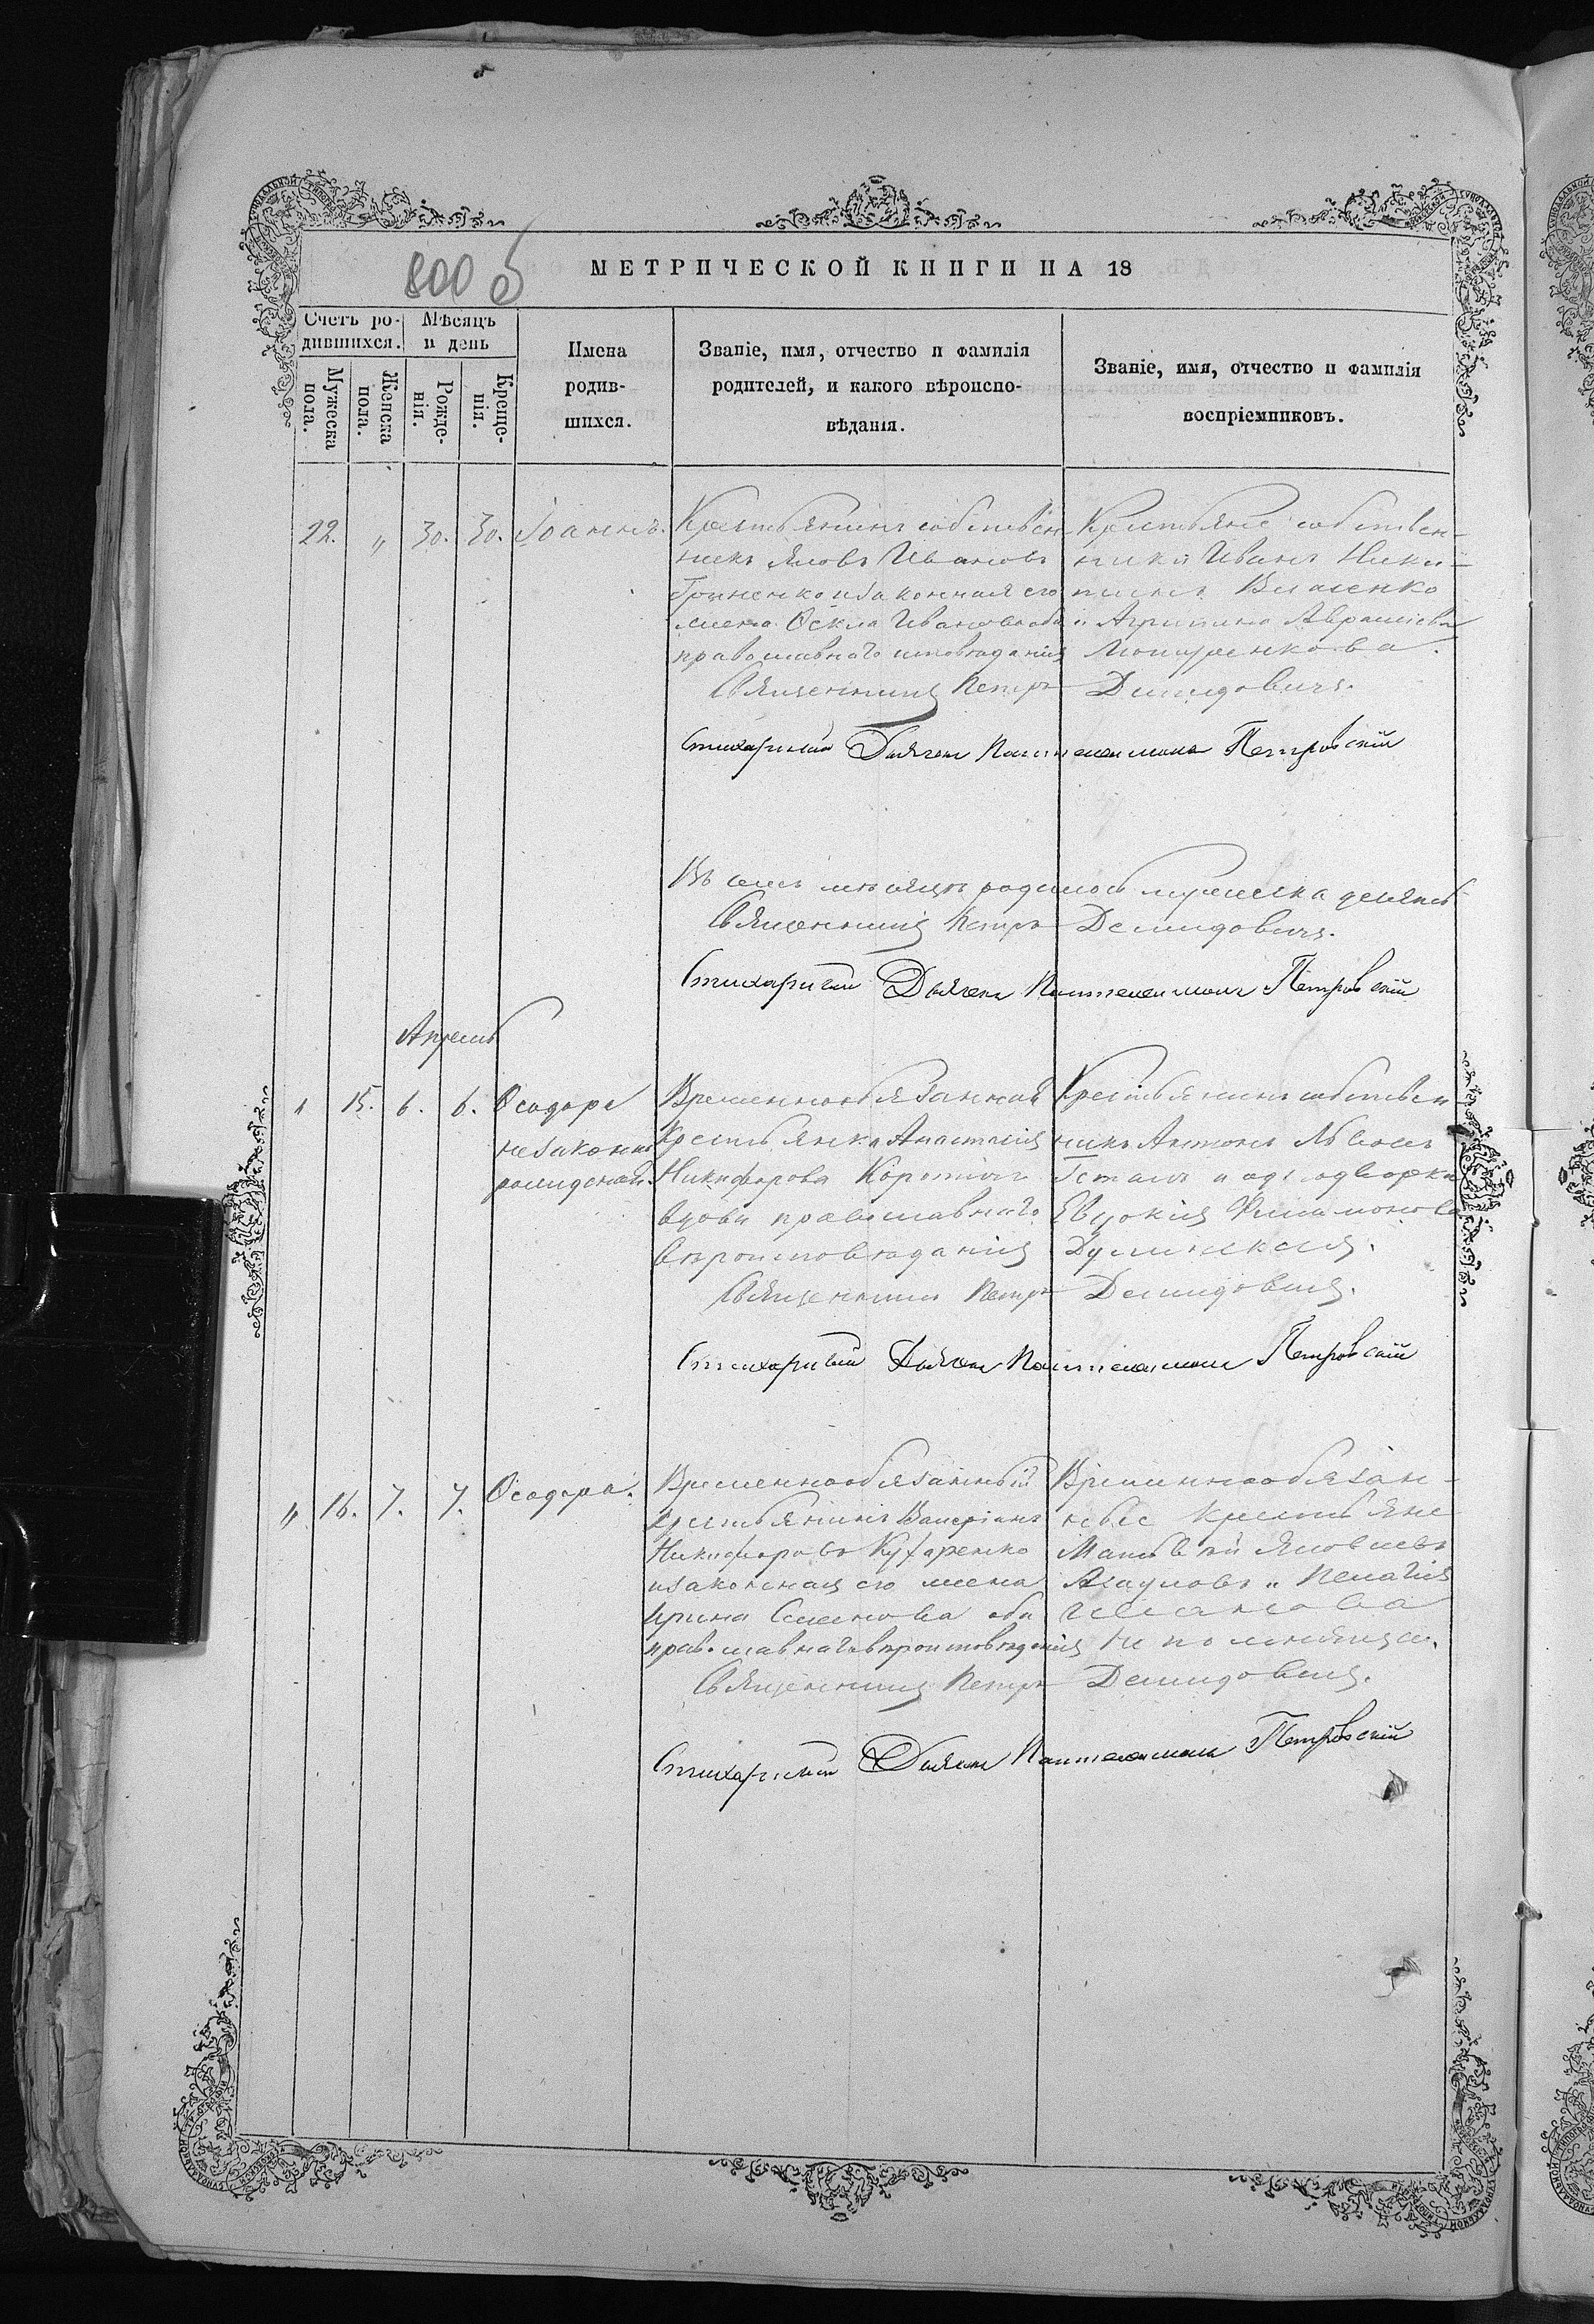 800 б
МЕТРИЧЕСКОЙ КНИГИ НА 18
Счетъ родившихся.
Мѣсяцъ и день
Мужеска пола.
Женска пола.
Рожденія.
Крещенія.
Имена
родив-
шихся.
Званіе, имя, отчество и фамилія
родителей, и какого вѣроиспо-
вѣданія.
Званіе, имя, отчество и фамилія
воспріемниковъ.
22. „ 30. 30. Іоаннъ.
Крестьянинъ собствен
никъ Яковъ Ивановъ
Гриненко и законная его
жена Ѳекла Иванова оба
православнаго исповѣданія
Крестьяне собствен-
ники Иванъ Ники-
Власенко
и Агрипина Аврамiева
Священникъ Петръ Демидовичъ.
Стихарный Дьячекъ Пантелеимонъ Петровскій
Въ семъ мѣсяцѣ родилось мужеска десять
Священникъ Петръ Демидовичъ.
Стихарный Дьячекъ Пантелеимонъ Петровскій
Апрель
„ 15. 6. 6. Ѳеодора
незаконно
рожденная.
Временнообязанная
Крестьянка Анастасія
Никифорова
вдова православнаго
вѣроисповѣданія
Крестьянинъ собствен
никъ Антонъ
и однодворка
Евдокія Филимонова
Священникъ Петръ Демидовичъ.
Стихарный Дьячекъ Пантелеимонъ Петровскій
„ 16. 7. 7. Ѳеодора.
Временнообязанный
крестьянинъ Валеріанъ
Никифоровъ Кухаренко
и законная его жена
Ирина Семенова оба
православнаго вѣроисповѣданія
Временнообязан-
ные крестьяне
Матвѣй Яковлевъ
и Пелагія
Священникъ Петръ Демидовичъ.
Стихарный Дьячекъ Пантелеимонъ Петровскій